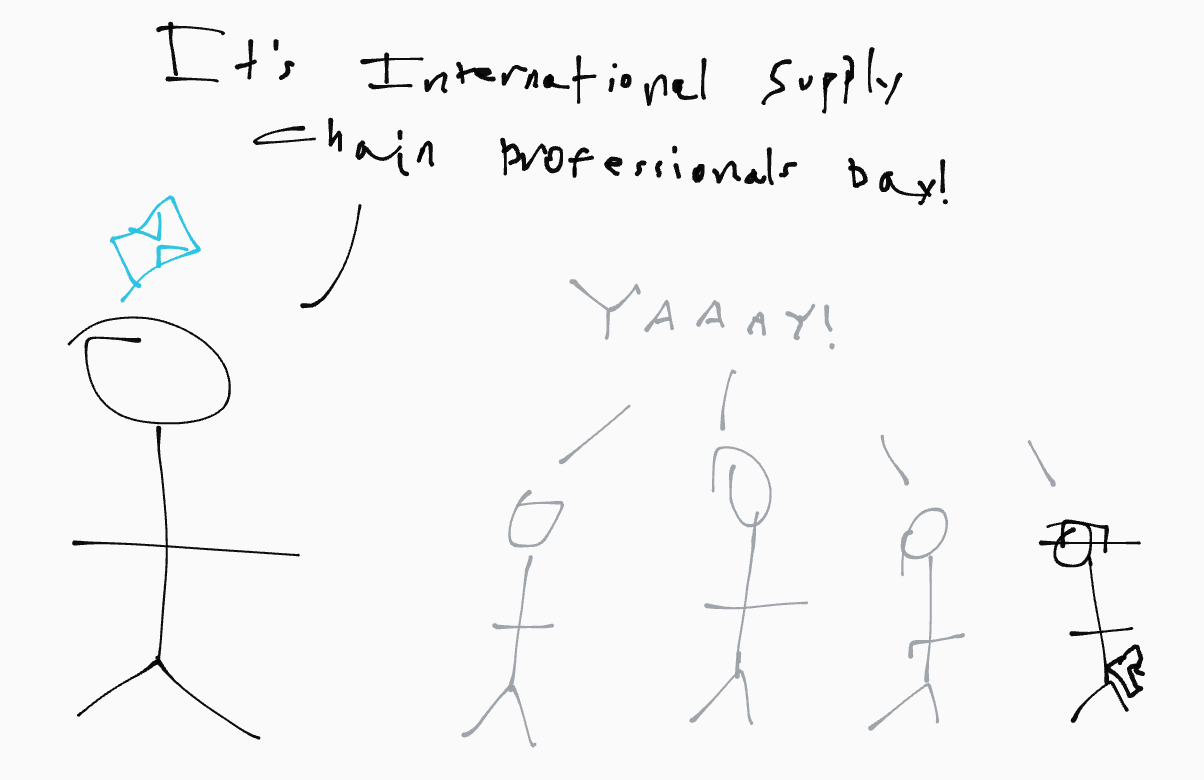 It's International Supply
Chain professionals Day!
YAAAAY!